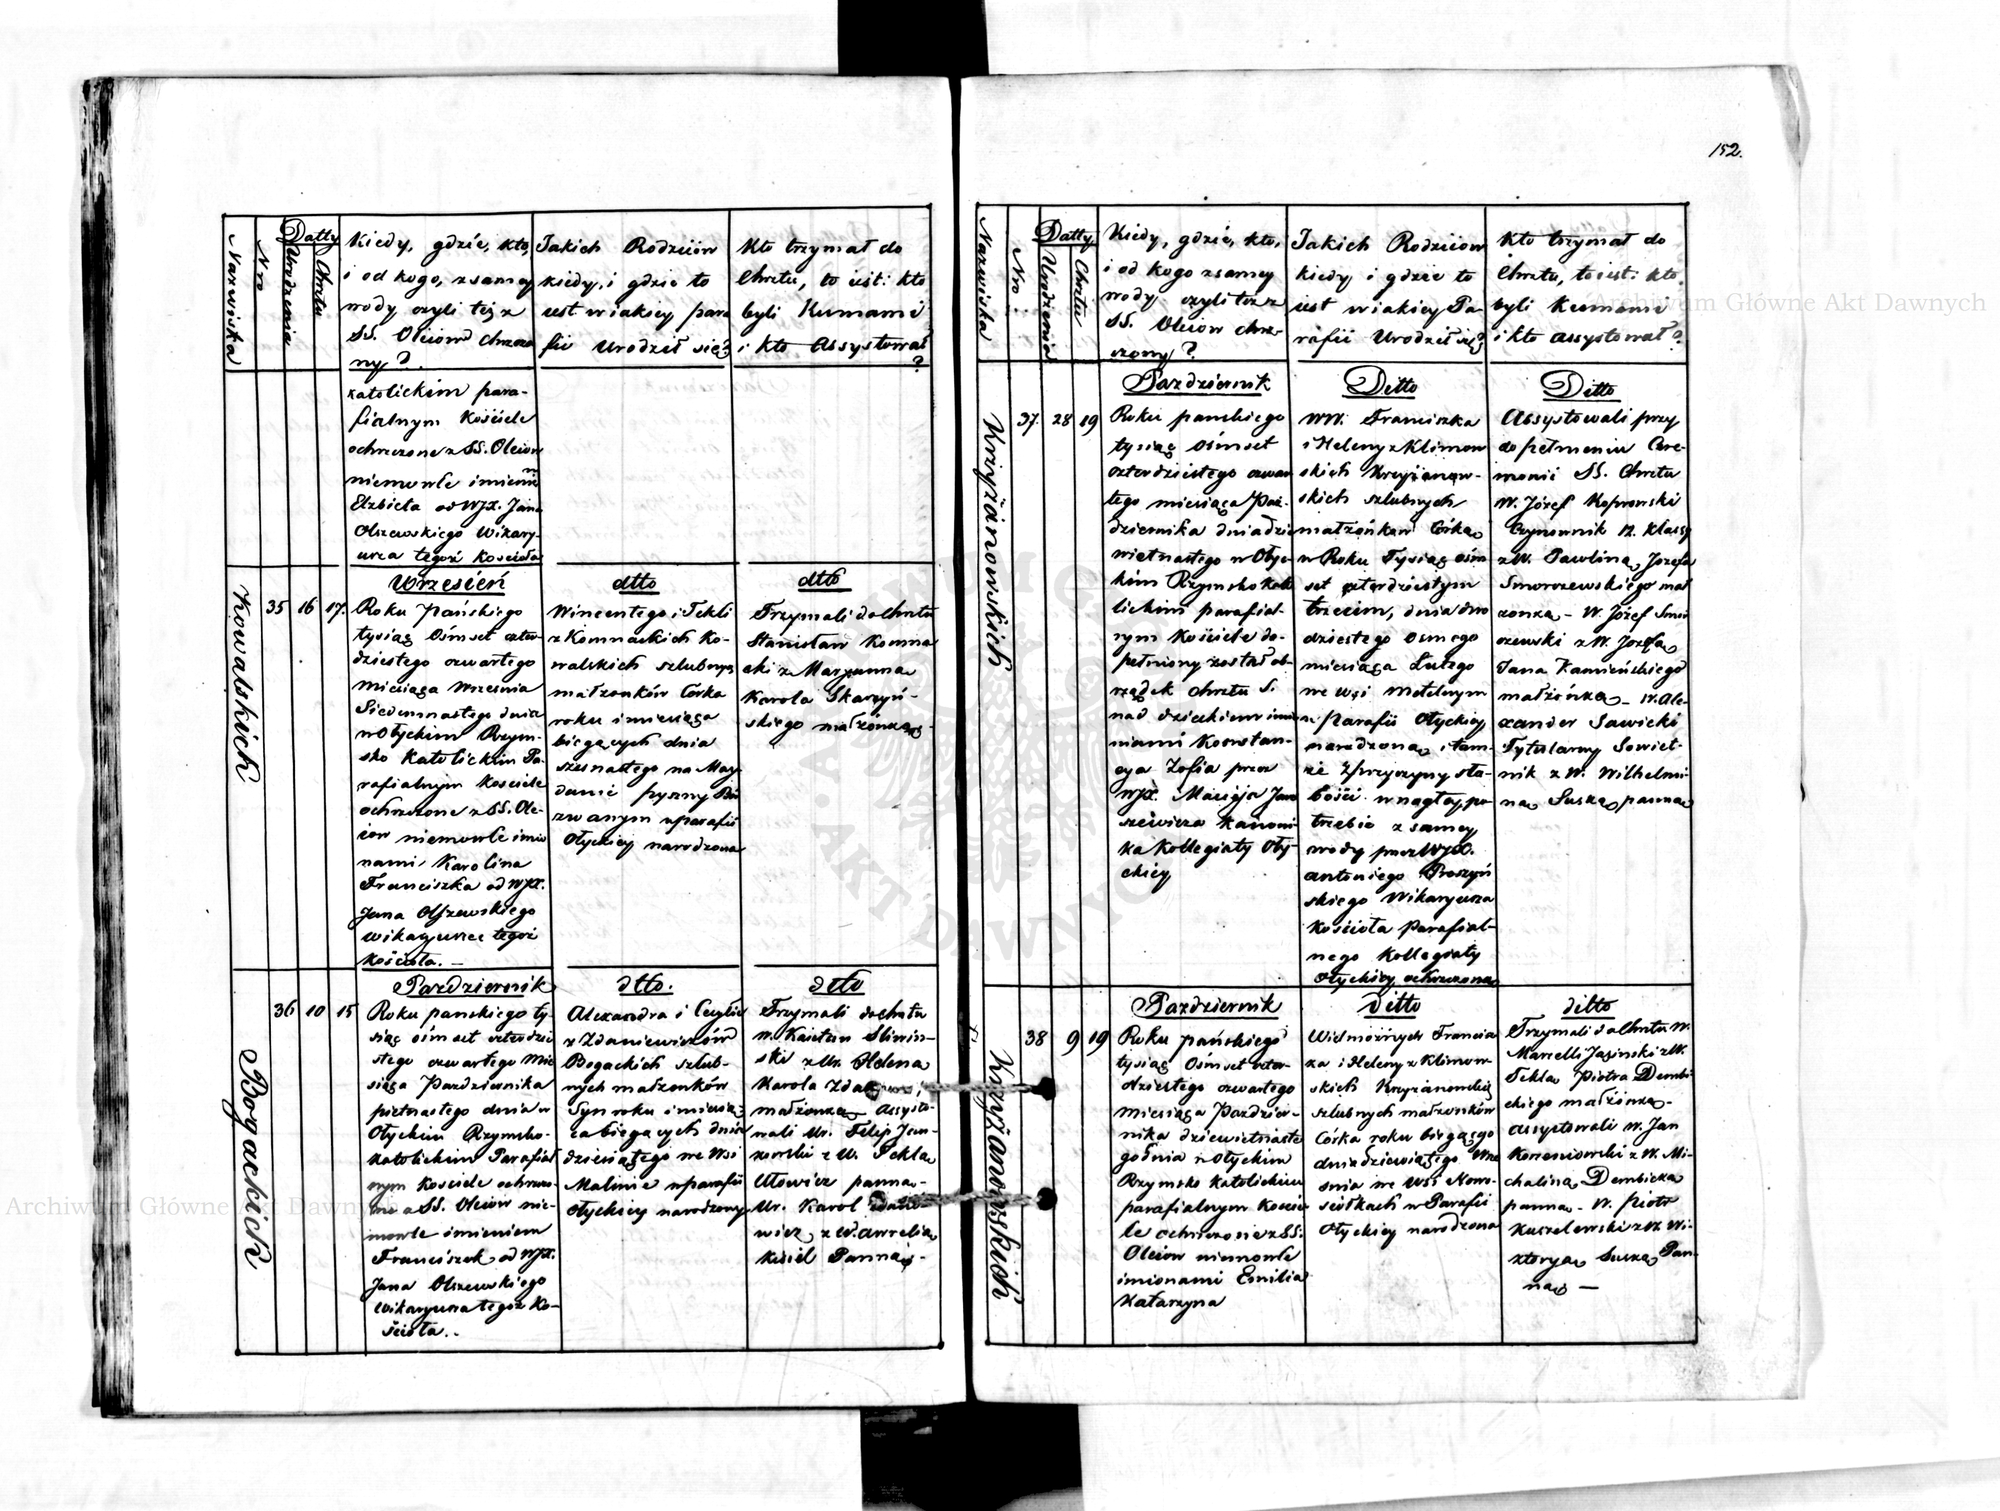 152.
Nazwiska
Nro
Datty
Urodzenia
Chrztu
Kiedy, gdzie, kto,
i od kogo, z samey
wody czyli też z
SS. Oleiów chrzczo
ny?
Jakich Rodziców
kiedy, i gdzie to
iest w iakiey para
fii Urodził się?
Kto trzymał do
Chrztu, to iest: kto
byli Kumami
i kto Assystował
?
katolickim para-
fialnym Kościele
ochrzczone z SS. Oleiów
niemowle imieniem
Elżbieta od WJX. Jana
Olszewskiego Wikary-
usza tegoż Kościoła
Kowalskich
35 16 17.
Wrzesień
Roku Pańskiego
tysiąc Ośmset czter-
dziestego czwartego
Miesiąca Września
Siedemnastego dnia
w Ołyckim Rzym-
sko Katolickim Pa-
rafialnym Kościele
ochrzczone z SS. Ole-
iów niemowle imio
nami Karolina
Franciszka od WJX.
Jana Olszewskiego
Wikaryusza tegoż
Kościoła. –
dtto
Wincentego i Tekli
z Komnackich Ko-
walskich szlubnych
małżonków Córka
roku i miesiąca
bieżących dnia
szesnastego na May-
danie
zwanym w parafii
Ołyckiey narodzona
dtto
Trzymali do chrztu
Stanisław Komna
cki z Maryanną
Karola Skarzyń-
skiego małżonką -
Bogackich
36 10 15
Pazdziernik
Roku pańskiego ty-
siąc ośmset czterdzie
stego czwartego Mie
siąca Pazdziernika
piętnastego dnia w
Ołyckim Rzymsko-
katolickim Parafial
nym Kościele ochrzczo-
no z SS. Oleiów nie-
mowle imieniem
Franciszek od WJX.
Jana Olszewskiego
Wikaryusza tegoż Ko-
ścioła. .
dtto.
Alexandra i Cecylii
z Zdaniewiczów
Bogackich szlub-
nych małżonków
Syn roku i miesią-
ca bieżących dnia
dziesiątego we Wsi
Malinie w parafii
Ołyckiey narodzony
dtto
Trzymali do chrztu
W. Kaietan Sliwiń-
ski z Ur. Heleną
Karola
małżonką Assysto-
wali Ur. Filip Jan-
kowski z W. Teklą
panną -
Ur. Karol
wicz z W. Aurelią
Kisiel Panną -
Nazwiska
Nro
Datty
Urodzenia
Chrztu
Kiedy, gdzie, kto,
i od kogo z samey
wody czyli też z
SS. Oleiów chrz-
czony?
Jakich Rodziców
kiedy i gdzie to
iest w iakiey Pa-
rafii Urodził się?
Kto trzymał do
Chrztu, to iest: kto
byli Kumami
i kto assystował?
Krzyżanowskich
37. 28 19
Pazdziernik
Roku pańskiego
tysiąc ośmset
czterdziestego czwar
tego miesiąca Paź-
dziernika dnia dzie
więtnastego w Ołyc-
kim Rzymsko kato
lickim parafial-
nym Kościele do-
pełniony został ob-
rządek chrztu S.
nad dzieckiem imio
niami Konstan-
cya Zofia przez
WJX. Macieja Jano
szewicza Kanoni-
ka Kollegiaty Oły-
ckiey
Ditto
WW. Franciszka
i Heleny z Klimow
skich Krzyżanow-
skich szlubnych
małżonków Córka
w Roku Tysiąc ośm
set czterdziestym
trzecim, dnia dwu
dziestego osmego
miesiąca Lutego
we wsi Metelnym
w parafii Ołyckiey
narodzona, i tam-
że z przyczyny sła-
bości w nagłey po-
trzebie z samey
wody przez WJX.
Antoniego Proszyń
skiego Wikaryusza
Kościoła Parafial-
nego Kollegiaty
Ołyckiey ochrzczona
Ditto
Assystowali przy
dopełnieniu Cere-
monii SS. Chrztu
W. Józef Koprowski
Czynownik 12. klassy
z W. Pauliną Józefa
Smorszewskiego mał
żonką – W. Józef Smor
szewski z W. Józefą
Jana Kamieńskiego
małżonką – W. Ale-
xander Sawicki
Tytularny Sowiet-
nik z W. Wilhelmi-
ną Suską panną
Krzyżanowskich
38 9 19
Pazdziernik
Roku pańskiego
tysiąc Ośmset czter-
dziestego czwartego
miesiąca Pazdzier-
nika dziewiętnaste
go dnia w Ołyckim
Rzymsko Katolickim
parafialnym Koście
le ochrzczono z SS.
Oleiów niemowle
imionami Emilia
Katarzyna
Ditto
Wielmożnych Francisz
ka i Heleny z Klimow-
skich Krzyżanowskich
szlubnych małżonków
Córka roku bieżącego
dnia dziewiątego Wrze
śnia we Wsi Nowo-
siółkach w Parafii
Ołyckiey narodzona
ditto
Trzymali do Chrztu W.
Marcelli Jasinski z W.
Teklą Piotra Dembi-
ckiego małżonką -
assystowali W. Jan
Korzeniowski z W. Mi-
chaliną Dembicką
panną - W. Piotr
Kuszelewski z W. Wi-
ktoryą Suską Pan-
ną –
Archiwum Główne Akt Dawnych
Archiwum Główne Akt Dawnych